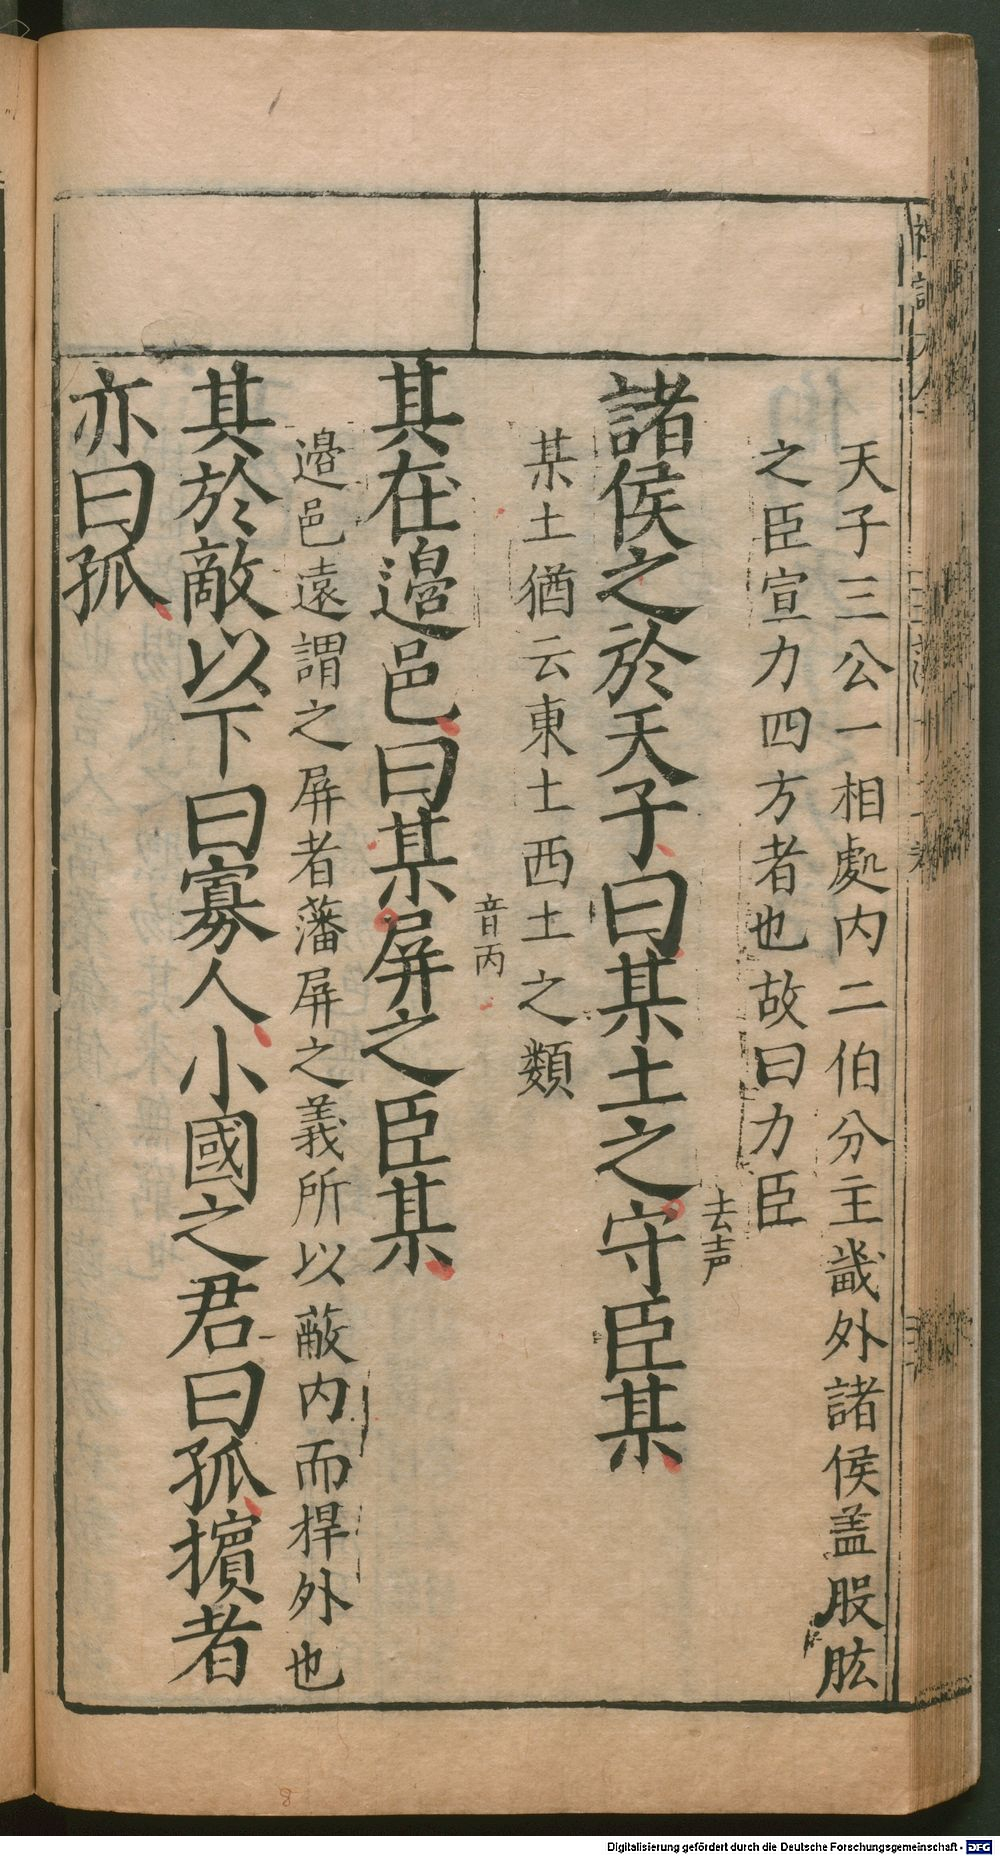 天子三公一相處内二伯分主畿外諸侯盖股肱
之臣宣力四方者也故曰力臣
去声
諸侯之於天子曰某土之守臣某
某土猶云東土西土之類
音丙
其在邉邑曰某屏之臣某
邉邑遠謂之屏者藩屏之義所以蔽内而捍外也
其於敵以下曰寡人小國之君曰孤擯者
亦曰孤
8
Digitalisierung gefördert durch die Deutsche Forschungsgemeinschaft - DFG